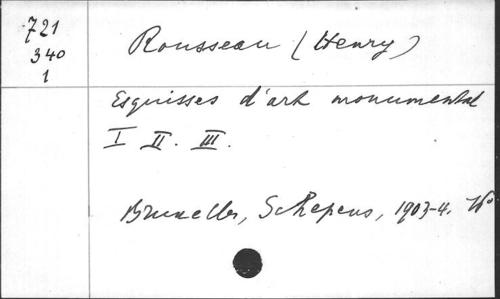 721
340
1
Rousseau (Henry)
Esquisses d'art monumental
I II. III.
Bruxelles, Schepens, 1903-4. 4o